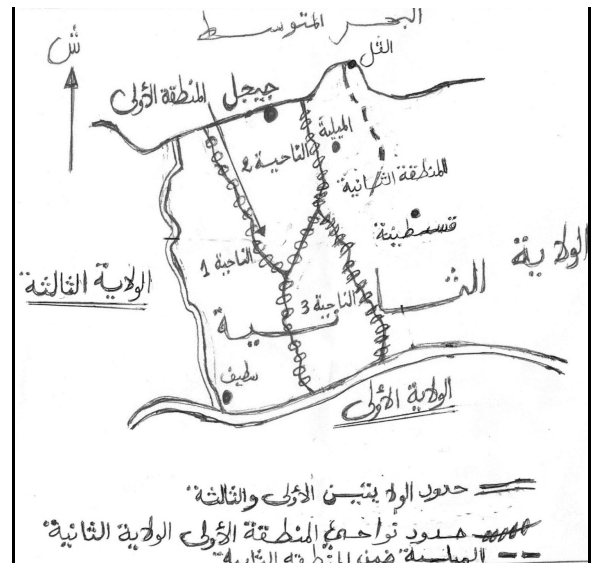 البحر المتوسط
ش
القل
المنطقة الأولى
جيجل
الميلية
الناحية 2
المنطقة الثانية
قسنطينة
الولاية الثانية
الناحية 1
الولاية الثالثة
الناحية 3
سطيف
الولاية الأولى
حدود الولايتين الأولى والثالثة
حدود نواحي المنطقة الأولى الولاية الثانية
الميلية ضمن المنطقة الثانية